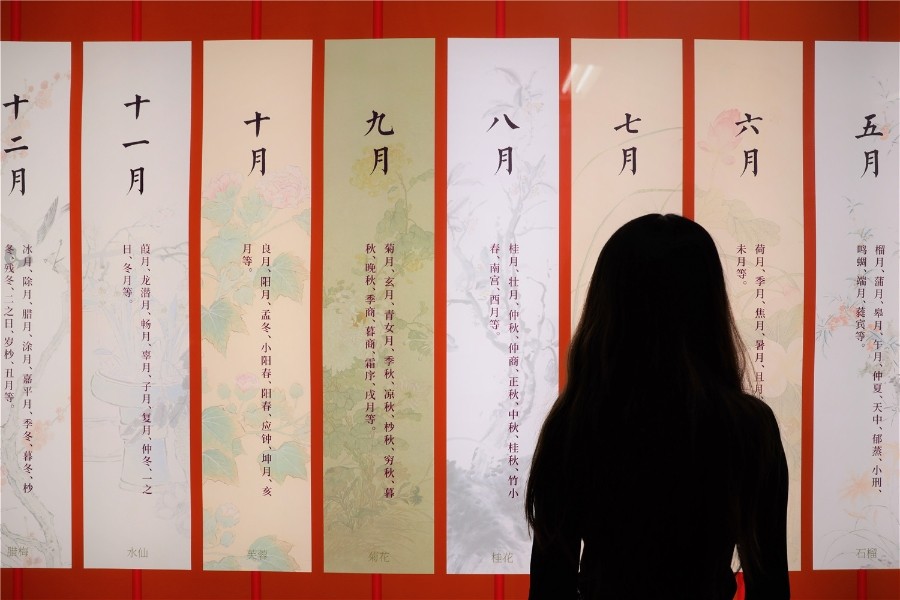 五月
榴月、蒲月、皋月、午月、仲夏、天中、郁蒸、小刑、
鸣蜩、端月、蕤宾等。
石榴
六月
荷月、季月、焦月、暑月、且月、
未月等。
七月
八月
桂月、壮月、仲秋、仲商、正秋、中秋、桂秋、竹小
春、南宫、酉月等。
桂花
九月
菊月、玄月、青女月、季秋、凉秋、杪秋、穷秋、暮
秋、晚秋、季商、暮商、霜序、戌月等。
菊花
十月
良月、阳月、孟冬、小阳春、阳春、应钟、坤月、亥
月等。
芙蓉
十一月
葭月、龙潜月、畅月、辜月、子月、复月、仲冬、一之
日、冬月等。
水仙
十二月
冰月、除月、腊月、涂月、嘉平月、季冬、暮冬、杪
冬、残冬、二之日、岁杪、丑月等。
腊梅